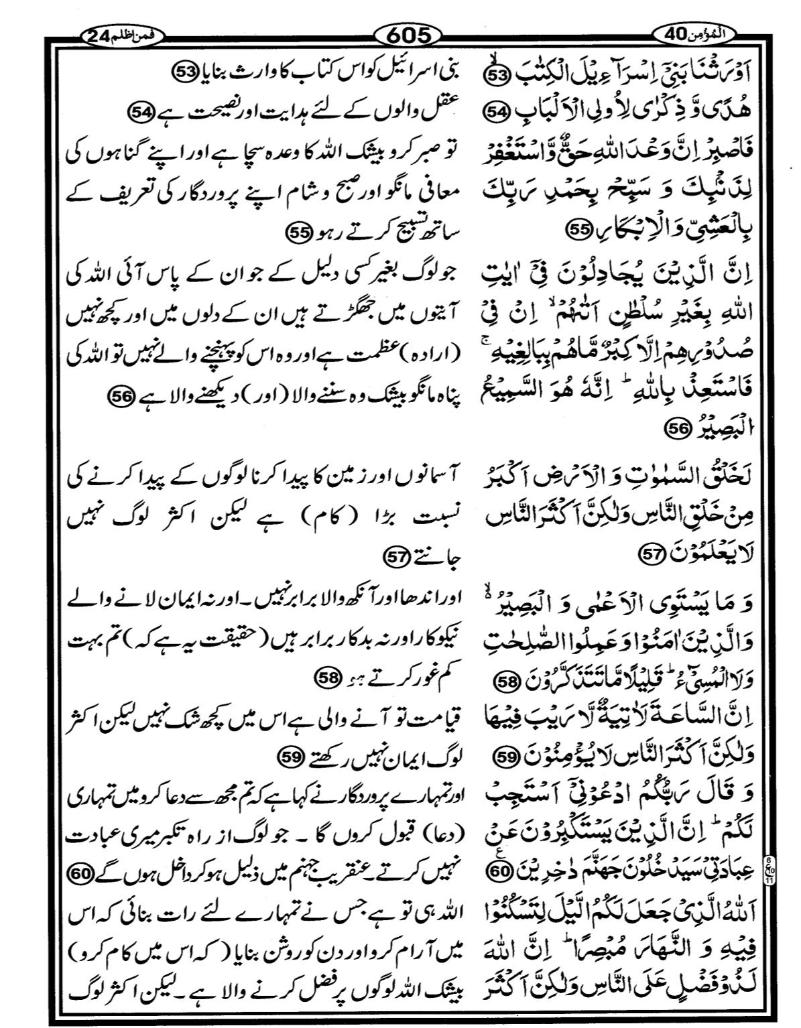 اَلْمُؤْمِن 40
605
فمن اظلم 24
اَوْرَثْنَا بَنِيْٓ اِسْرَآءِيْلَ الْكِتٰبَ ۙ 53
هُدًى وَّ ذِكْرٰى لِاُولِي الْاَلْبَابِ 54
فَاصْبِرْ اِنَّ وَعْدَ اللّٰهِ حَقٌّ وَّاسْتَغْفِرْ
لِذَنْۢبِكَ وَ سَبِّحْ بِحَمْدِ رَبِّكَ
بِالْعَشِيِّ وَ الْاِبْكَارِ 55
اِنَّ الَّذِيْنَ يُجَادِلُوْنَ فِيْٓ اٰيٰتِ
اللّٰهِ بِغَيْرِ سُلْطٰنٍ اَتٰىهُمْ ۙ اِنْ فِيْ
صُدُوْرِهِمْ اِلَّا كِبْرٌ مَّا هُمْ بِبَالِغِيْهِ ۚ
فَاسْتَعِذْ بِاللّٰهِ ؕ اِنَّهٗ هُوَ السَّمِيْعُ
الْبَصِيْرُ 56
لَخَلْقُ السَّمٰوٰتِ وَ الْاَرْضِ اَكْبَرُ
مِنْ خَلْقِ النَّاسِ وَلٰكِنَّ اَكْثَرَ النَّاسِ
لَا يَعْلَمُوْنَ 57
وَ مَا يَسْتَوِي الْاَعْمٰى وَ الْبَصِيْرُ ۙ
وَ الَّذِيْنَ اٰمَنُوْا وَ عَمِلُوا الصّٰلِحٰتِ
وَلَا الْمُسِيْٓءُ ؕ قَلِيْلًا مَّا تَتَذَكَّرُوْنَ 58
اِنَّ السَّاعَةَ لَاٰتِيَةٌ لَّا رَيْبَ فِيْهَا
وَلٰكِنَّ اَكْثَرَ النَّاسِ لَا يُؤْمِنُوْنَ 59
وَ قَالَ رَبُّكُمُ ادْعُوْنِيْٓ اَسْتَجِبْ
لَكُمْ ؕ اِنَّ الَّذِيْنَ يَسْتَكْبِرُوْنَ عَنْ
عِبَادَتِيْ سَيَدْخُلُوْنَ جَهَنَّمَ دٰخِرِيْنَ 60
اَللّٰهُ الَّذِيْ جَعَلَ لَكُمُ الَّيْلَ لِتَسْكُنُوْا
فِيْهِ وَ النَّهَارَ مُبْصِرًا ؕ اِنَّ اللّٰهَ
لَذُوْ فَضْلٍ عَلَى النَّاسِ وَلٰكِنَّ اَكْثَرَ
بنی اسرائیل کو اس کتاب کا وارث بنایا 53
عقل والوں کے لئے ہدایت اور نصیحت ہے 54
تو صبر کرو بیشک اللہ کا وعدہ سچا ہے اور اپنے گناہوں کی
معافی مانگو اور صبح و شام اپنے پروردگار کی تعریف کے
ساتھ تسبیح کرتے رہو 55
جو لوگ بغیر کسی دلیل کے جو ان کے پاس آئی اللہ کی
آیتوں میں جھگڑتے ہیں ان کے دلوں میں اور کچھ نہیں
(ارادہ) عظمت ہے اور وہ اس کو پہنچنے والے نہیں تو اللہ کی
پناہ مانگو بیشک وہ سننے والا (اور) دیکھنے والا ہے 56
آسمانوں اور زمین کا پیدا کرنا لوگوں کے پیدا کرنے کی
نسبت بڑا (کام) ہے لیکن اکثر لوگ نہیں
جانتے 57
اور اندھا اور آنکھ والا برابر نہیں۔ اور نہ ایمان لانے والے
نیکوکار اور نہ بدکار برابر ہیں (حقیقت یہ ہے کہ) تم بہت
کم غور کرتے ہو 58
قیامت تو آنے والی ہے اس میں کچھ شک نہیں لیکن اکثر
لوگ ایمان نہیں رکھتے 59
اور تمہارے پروردگار نے کہا ہے کہ تم مجھ سے دعا کرو میں تمہاری
(دعا) قبول کروں گا ۔ جو لوگ از راہ تکبر میری عبادت
نہیں کرتے۔ عنقریب جہنم میں ذلیل ہو کر داخل ہوں گے 60
اللہ ہی تو ہے جس نے تمہارے لئے رات بنائی کہ اس
میں آرام کرو اور دن کو روشن بنایا (کہ اس میں کام کرو)
بیشک اللہ لوگوں پر فضل کرنے والا ہے ۔ لیکن اکثر لوگ